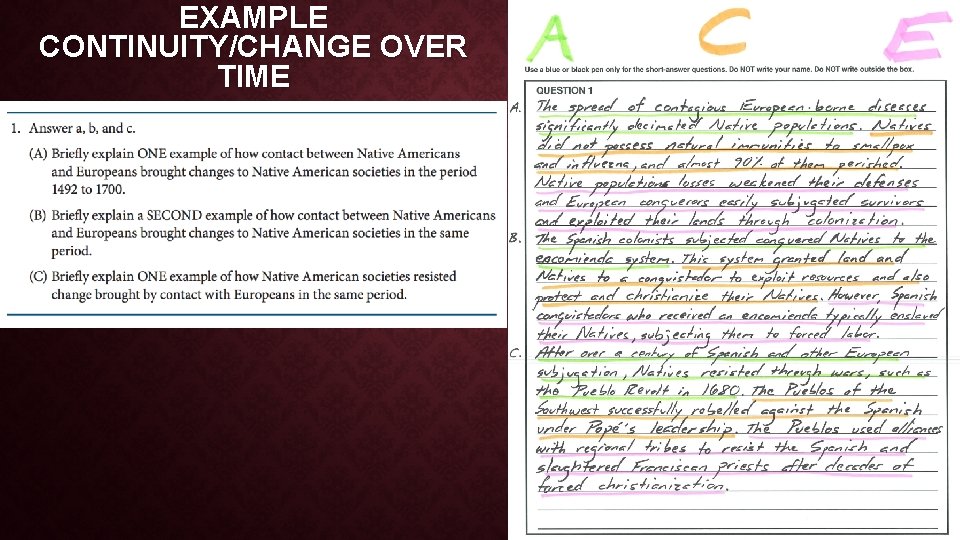 EXAMPLE
CONTINUITY/CHANGE OVER
TIME
1. Answer a, b, and c.
(A) Briefly explain ONE example of how contact between Native Americans
and Europeans brought changes to Native American societies in the period
1492 to 1700.
(B) Briefly explain a SECOND example of how contact between Native Americans
and Europeans brought changes to Native American societies in the same
period.
(C) Briefly explain ONE example of how Native American societies resisted
change brought by contact with Europeans in the same period.
A C E
Use a blue or black pen only for the short-answer questions. Do NOT write your name. Do NOT write outside the box.
QUESTION 1
A. The spread of contagious European-borne diseases
significantly decimated Native populations. Natives
did not possess natural immunities to smallpox
and influenza, and almost 90% of them perished.
Native populations losses weakened their defenses
and European conquerors easily subjugated survivors
and exploited their lands through colonization.
B. The Spanish colonists subjected conquered Natives to the
encomienda system. This system granted land and
Natives to a conquistador to exploit resources and also
protect and christianize their Natives. However, Spanish
conquistadors who received an encomienda typically enslaved
their Natives, subjecting them to forced labor.
C. After over a century of Spanish and other European
subjugation, Natives resisted through wars, such as
the Pueblo Revolt in 1680. The Pueblos of the
Southwest successfully rebelled against the Spanish
under Popé's leadership. The Pueblos used alliances
with regional tribes to resist the Spanish and
slaughtered Franciscan priests after decades of
forced christianization.